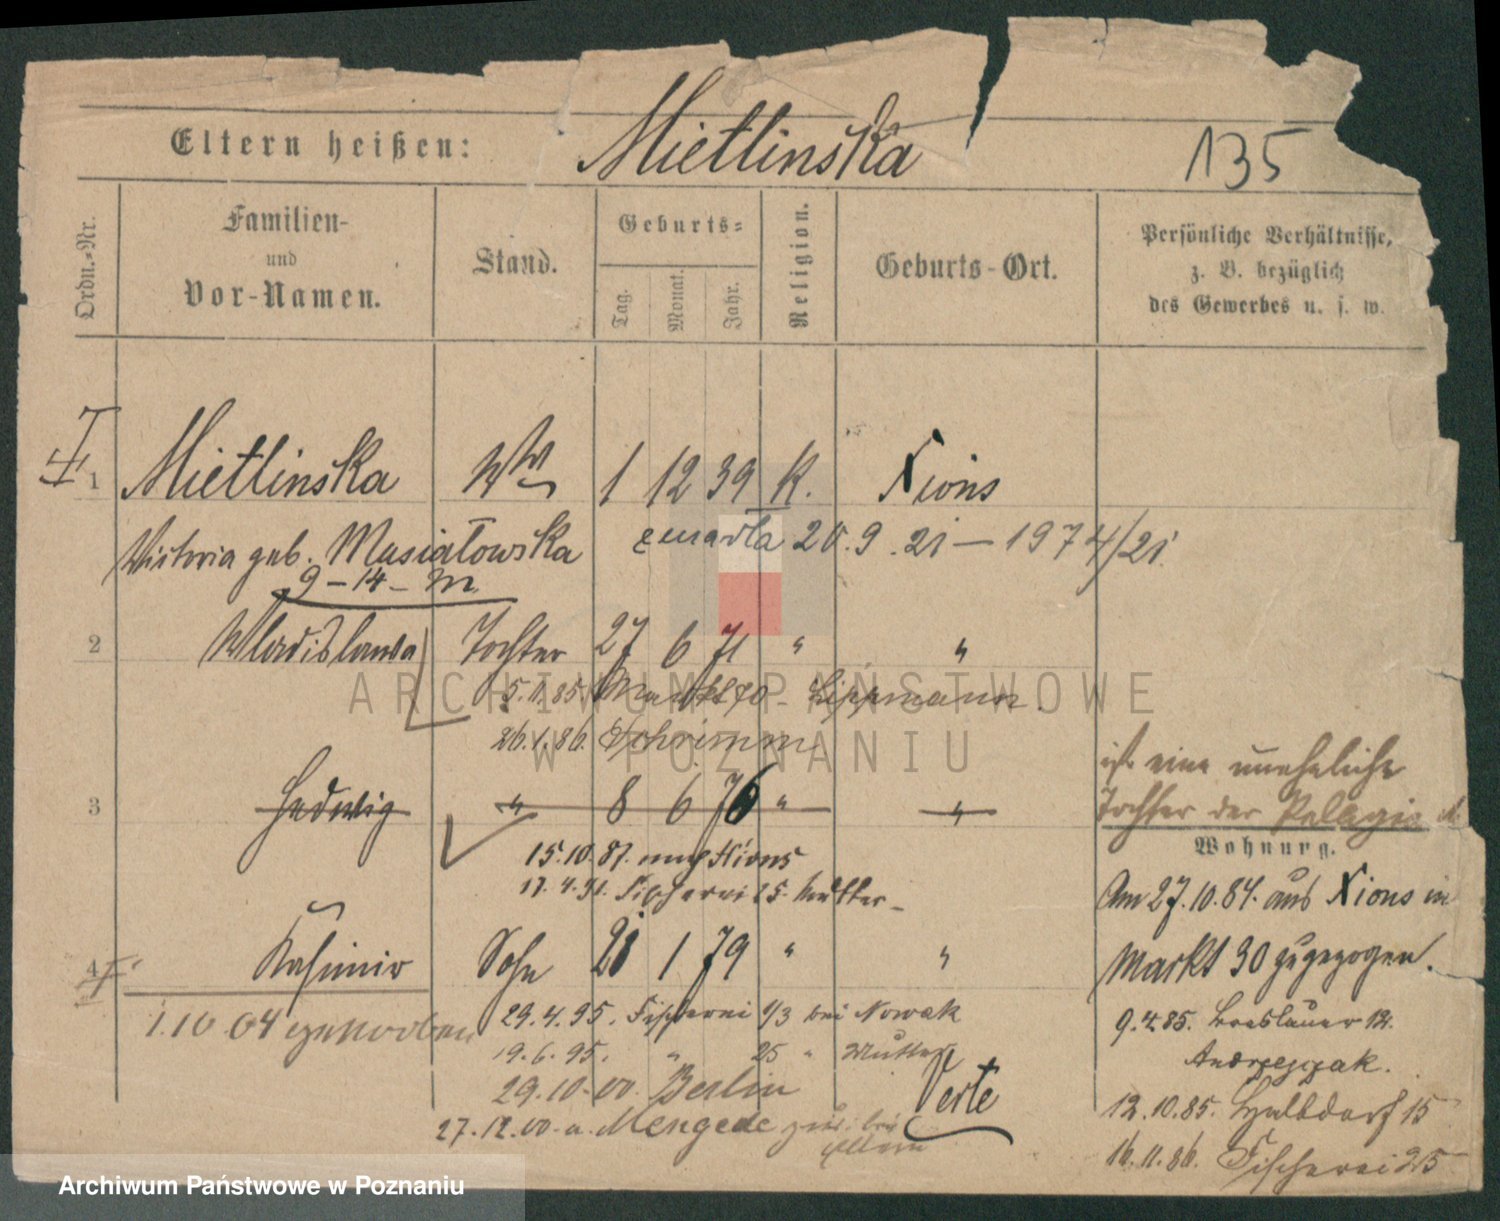 Eltern heißen: Mietlinska 135
Ordn.-Nr.
Familien-
und
Vor-Namen.
Stand.
Geburts-
Tag.
Monat.
Jahr.
Religion.
Geburts-Ort.
Persönliche Verhältnisse,
z. B. bezüglich
des Gewerbes u. s. w.
1 Mietlinska Ww 1 12 39 K. Xions
Victoria geb. Musiatowska zmarła 20.9.21 — 1974/21
9-14-M
2 Wladislawa Tochter 27 6 71 " "
5.11.85 Markt 70 - Lippmann.
26.1.86. Schrimm
3 Hedwig " 8 6 76 " "
15.10.87. nach Xions
17.4.91. Fischerei 25. Mutter
4 Kasimir Sohn 21 1 79 " "
1.10 04 gestorben
29.4.95. Fischerei 1/3 bei Nowak
19.6.95. " 25 " Mutter
29.10.00. Berlin
27.12.00. a. Mengede zur. bei
Eltern
Verte
ist eine uneheliche
Tochter der Pelagia
Wohnung.
Am 27.10.84. aus Xions in
Markt 30 gezogen.
9.4.85. Breslauer 12.
Andrzejzak.
12.10.85. Halbdorf 15
16.11.86. Fischerei 25
ARCHIWUM PAŃSTWOWE
W POZNANIU
Archiwum Państwowe w Poznaniu